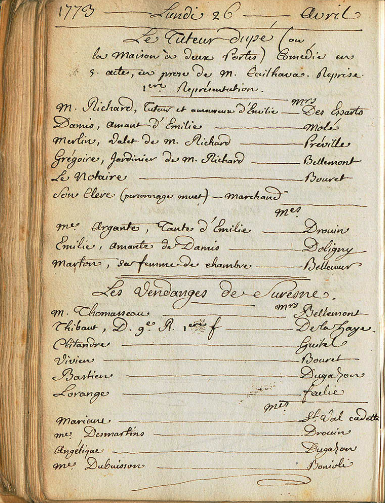 1773 Lundi 26 Avril
Le Tuteur dupé (ou
la Maison à deux Portes) Comédie en
5 actes, en prose de M. Cailhava. Reprise
1ere Représentation.
Mrs
M. Richard, tuteur et amoureux d'Emilie Des Essarts
Damis, Amant d'Emilie Molé
Merlin, valet de M. Richard Préville
Gregoire, Jardinier de M. Richard Bellemont
Le Notaire Bouret
Son Clerc (personnage muet) Marchand
Mes
Me Argante, Tante d'Emilie Drouin
Emilie, amante de Damis Doligny
Marton, sa femme de chambre Bellecour
Les Vendanges de Suresne.
Mrs
M. Thomasseau Bellemont
Thibaut, De la Haye
Clitandre
Vivien Bouret
Bastien Dugazon
Lorange
Mes
Mariane St Val cadette
Me Desmartins Drouin
Angélique Dugazon
Me Dubuisson